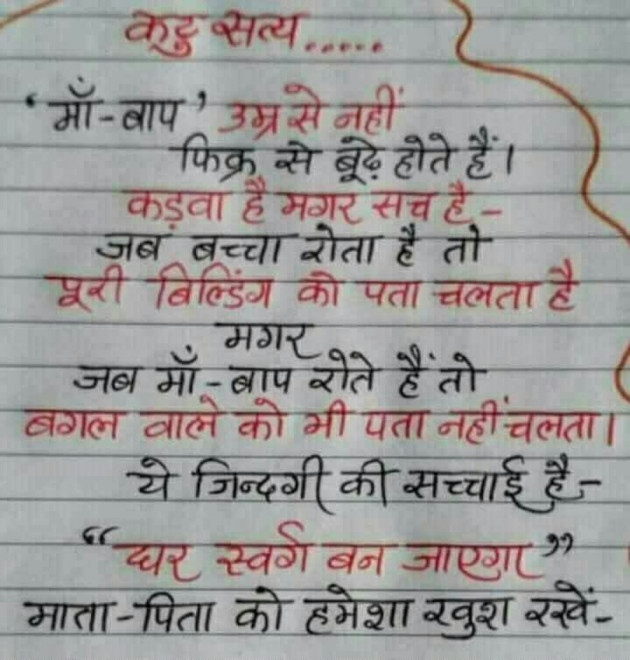 कटु सत्य.....
‘माँ-बाप’ उम्र से नहीं
फिक्र से बूढ़े होते हैं।
कड़वा है मगर सच है-
जब बच्चा रोता है तो
पूरी बिल्डिंग को पता चलता है
मगर
जब माँ-बाप रोते हैं तो
बगल वाले को भी पता नहीं चलता।
ये जिन्दगी की सच्चाई है-
“घर स्वर्ग बन जाएगा”
माता-पिता को हमेशा खुश रखें-